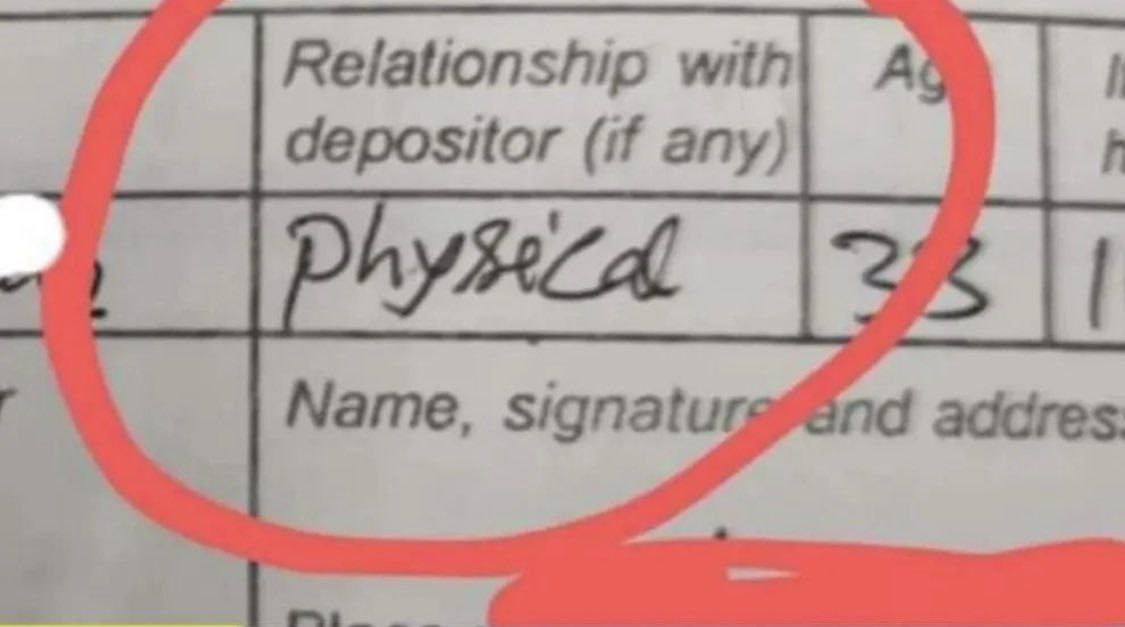 Relationship with
depositor (if any)
Physical
33
Name, signature and